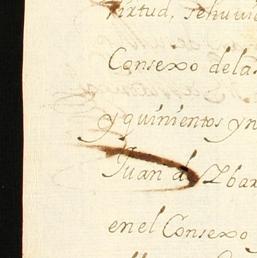 virtud, se huvie
Consexo de las
y quinientos y n
Juan de Ybar
en el Consexo